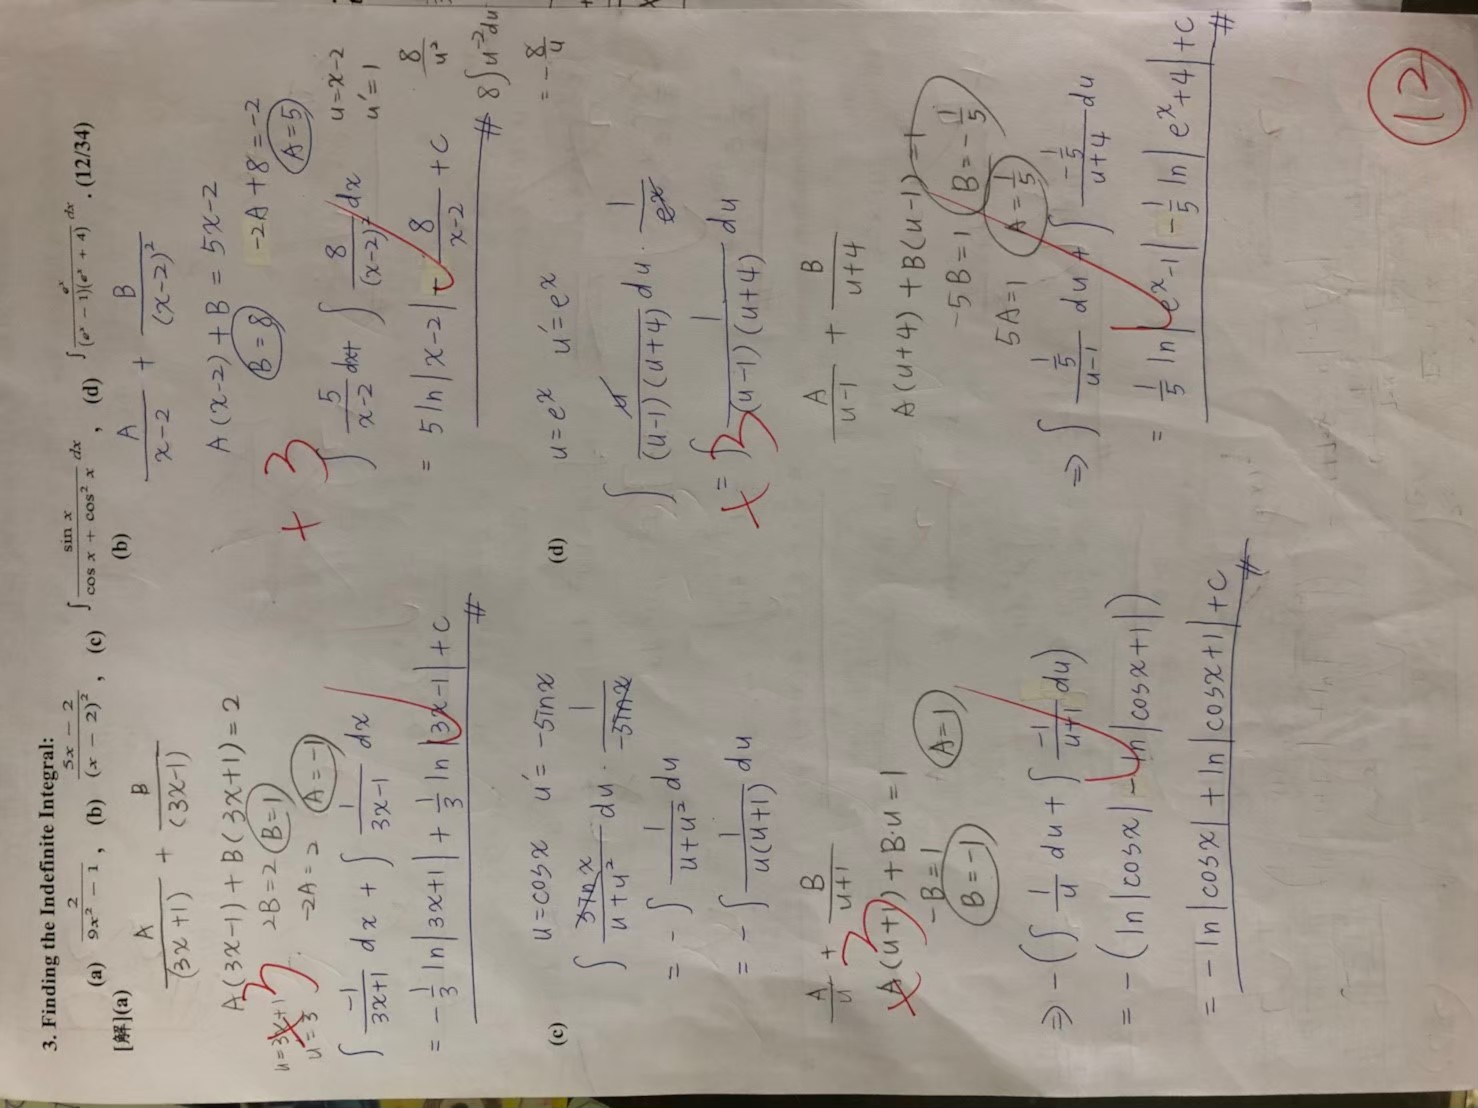 3. Finding the Indefinite Integral:
(a) 2/(9x² − 1), (b) (5x − 2)/(x − 2)², (c) ∫ sin x/(cos x + cos² x) dx, (d) ∫ eˣ/((eˣ − 1)(eˣ + 4)) dx. (12/34)
[解](a)
A/(3x+1) + B/(3x-1)
A(3x-1) + B(3x+1) = 2
+3
u=3x+1
u'=3
2B=2 B=1
-2A=2 A=-1
∫ -1/(3x+1) dx + ∫ 1/(3x-1) dx
= -1/3 ln|3x+1| + 1/3 ln|3x-1| + c
#
(b)
A/(x-2) + B/(x-2)²
A(x-2) + B = 5x-2
B=8
-2A+8=-2
A=5
+3
∫ 5/(x-2) dx + ∫ 8/(x-2)² dx
u=x-2
u'=1
= 5 ln|x-2| - 8/(x-2) + c
#
8/u²
8∫u⁻²du
= -8/u
(c)
u=cosx u'=-sinx
∫ sinx/(u+u²) du · 1/(-sinx)
= -∫ 1/(u+u²) du
= -∫ 1/(u(u+1)) du
A/u + B/(u+1)
+3
A(u+1) + B·u = 1
-B=1
B=-1
A=1
⇒ -(∫ 1/u du + ∫ -1/(u+1) du)
= -(ln|cosx| - ln|cosx+1|)
= -ln|cosx| + ln|cosx+1| + c
#
(d)
u=eˣ u'=eˣ
∫ u/((u-1)(u+4)) du · 1/eˣ
= ∫ 1/((u-1)(u+4)) du
+3
A/(u-1) + B/(u+4)
A(u+4) + B(u-1) = 1
-5B=1 B=-1/5
5A=1 A=1/5
⇒ ∫ (1/5)/(u-1) du + ∫ (-1/5)/(u+4) du
= 1/5 ln|eˣ-1| - 1/5 ln|eˣ+4| + c
#
12